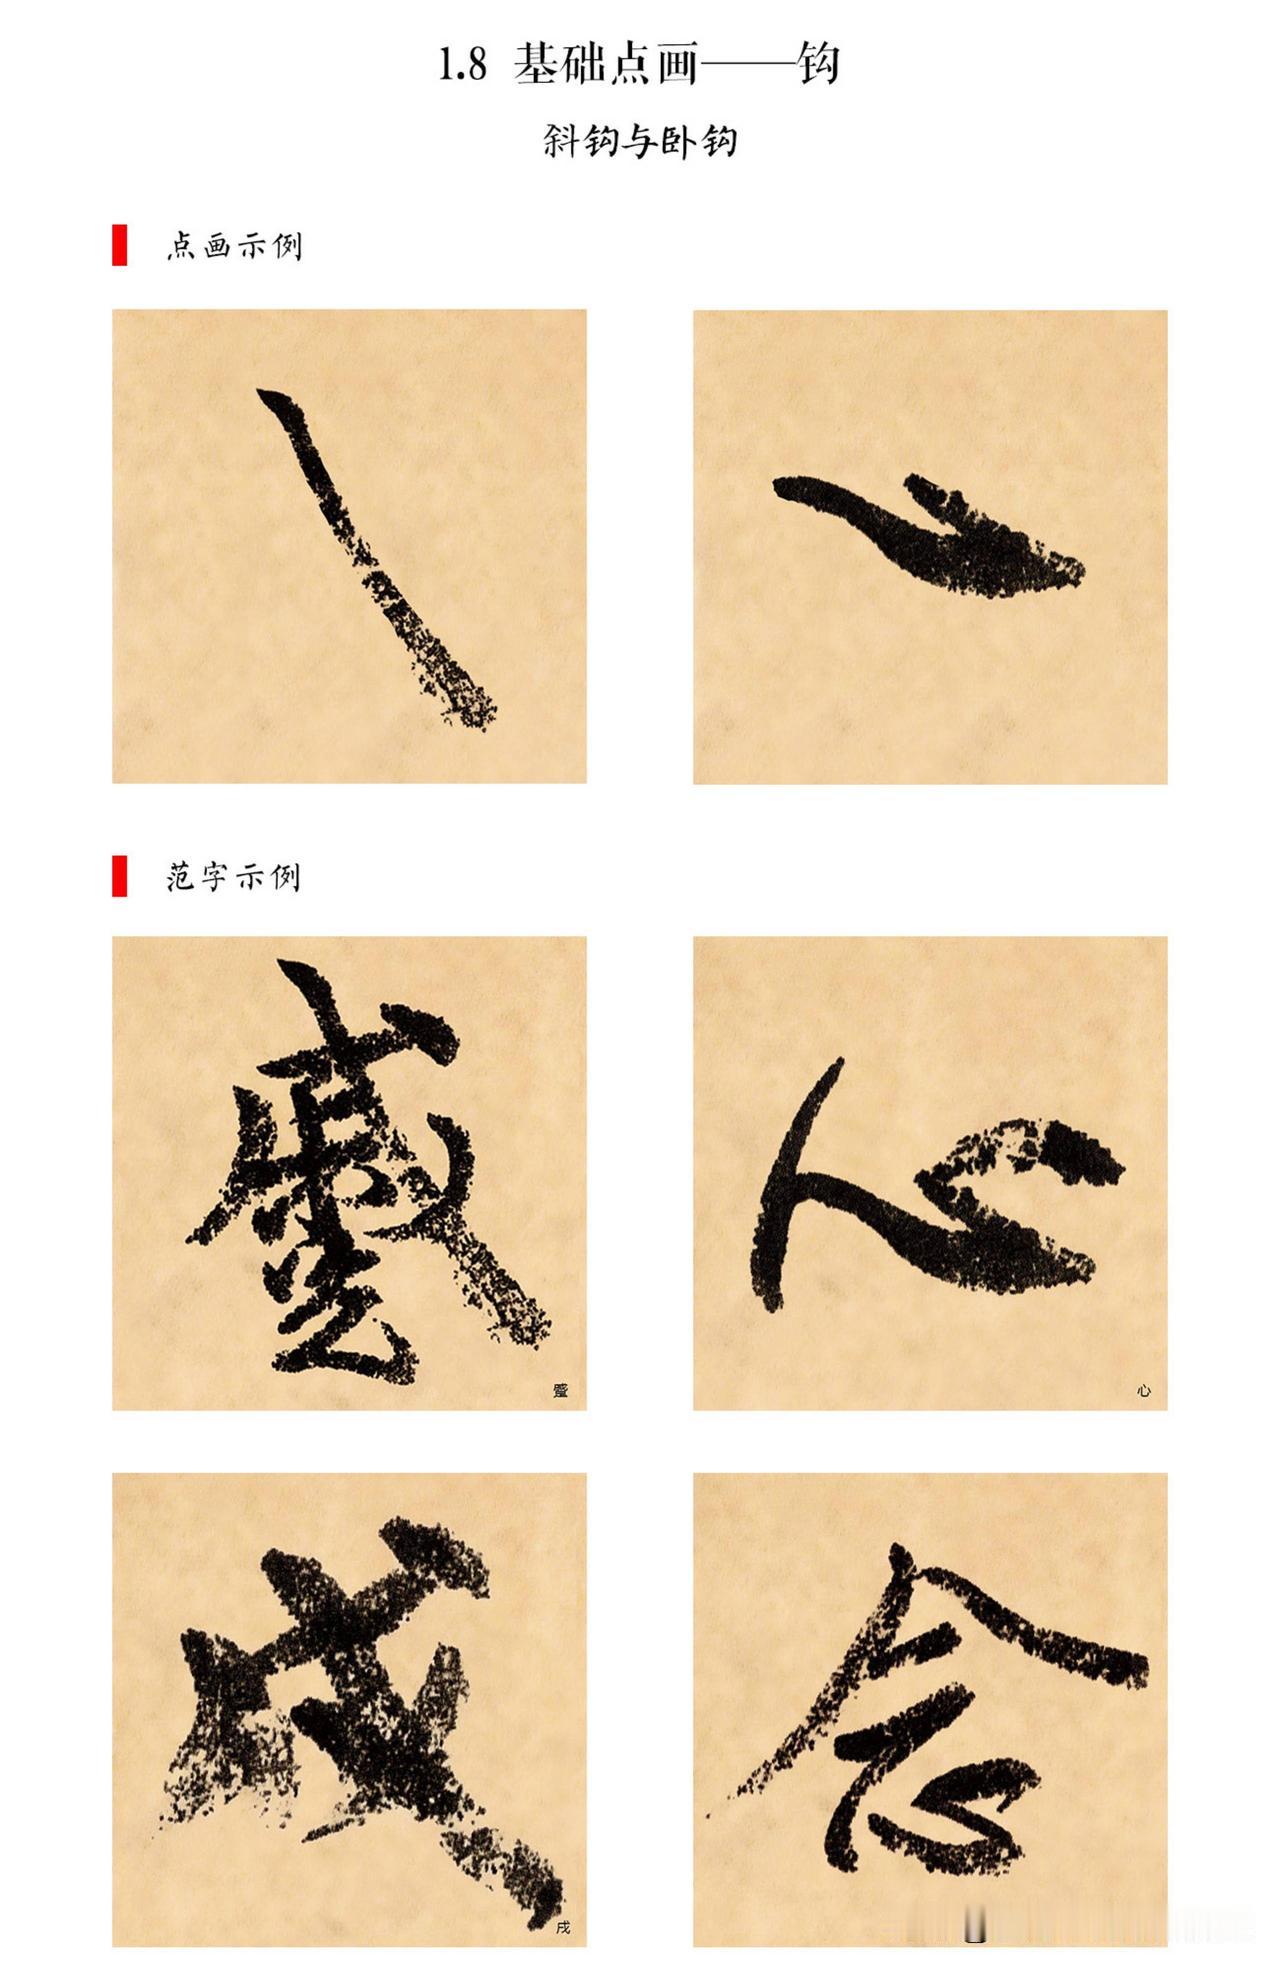 1.8 基础点画——钩
斜钩与卧钩
点画示例
范字示例
心
心
戌
念
戌